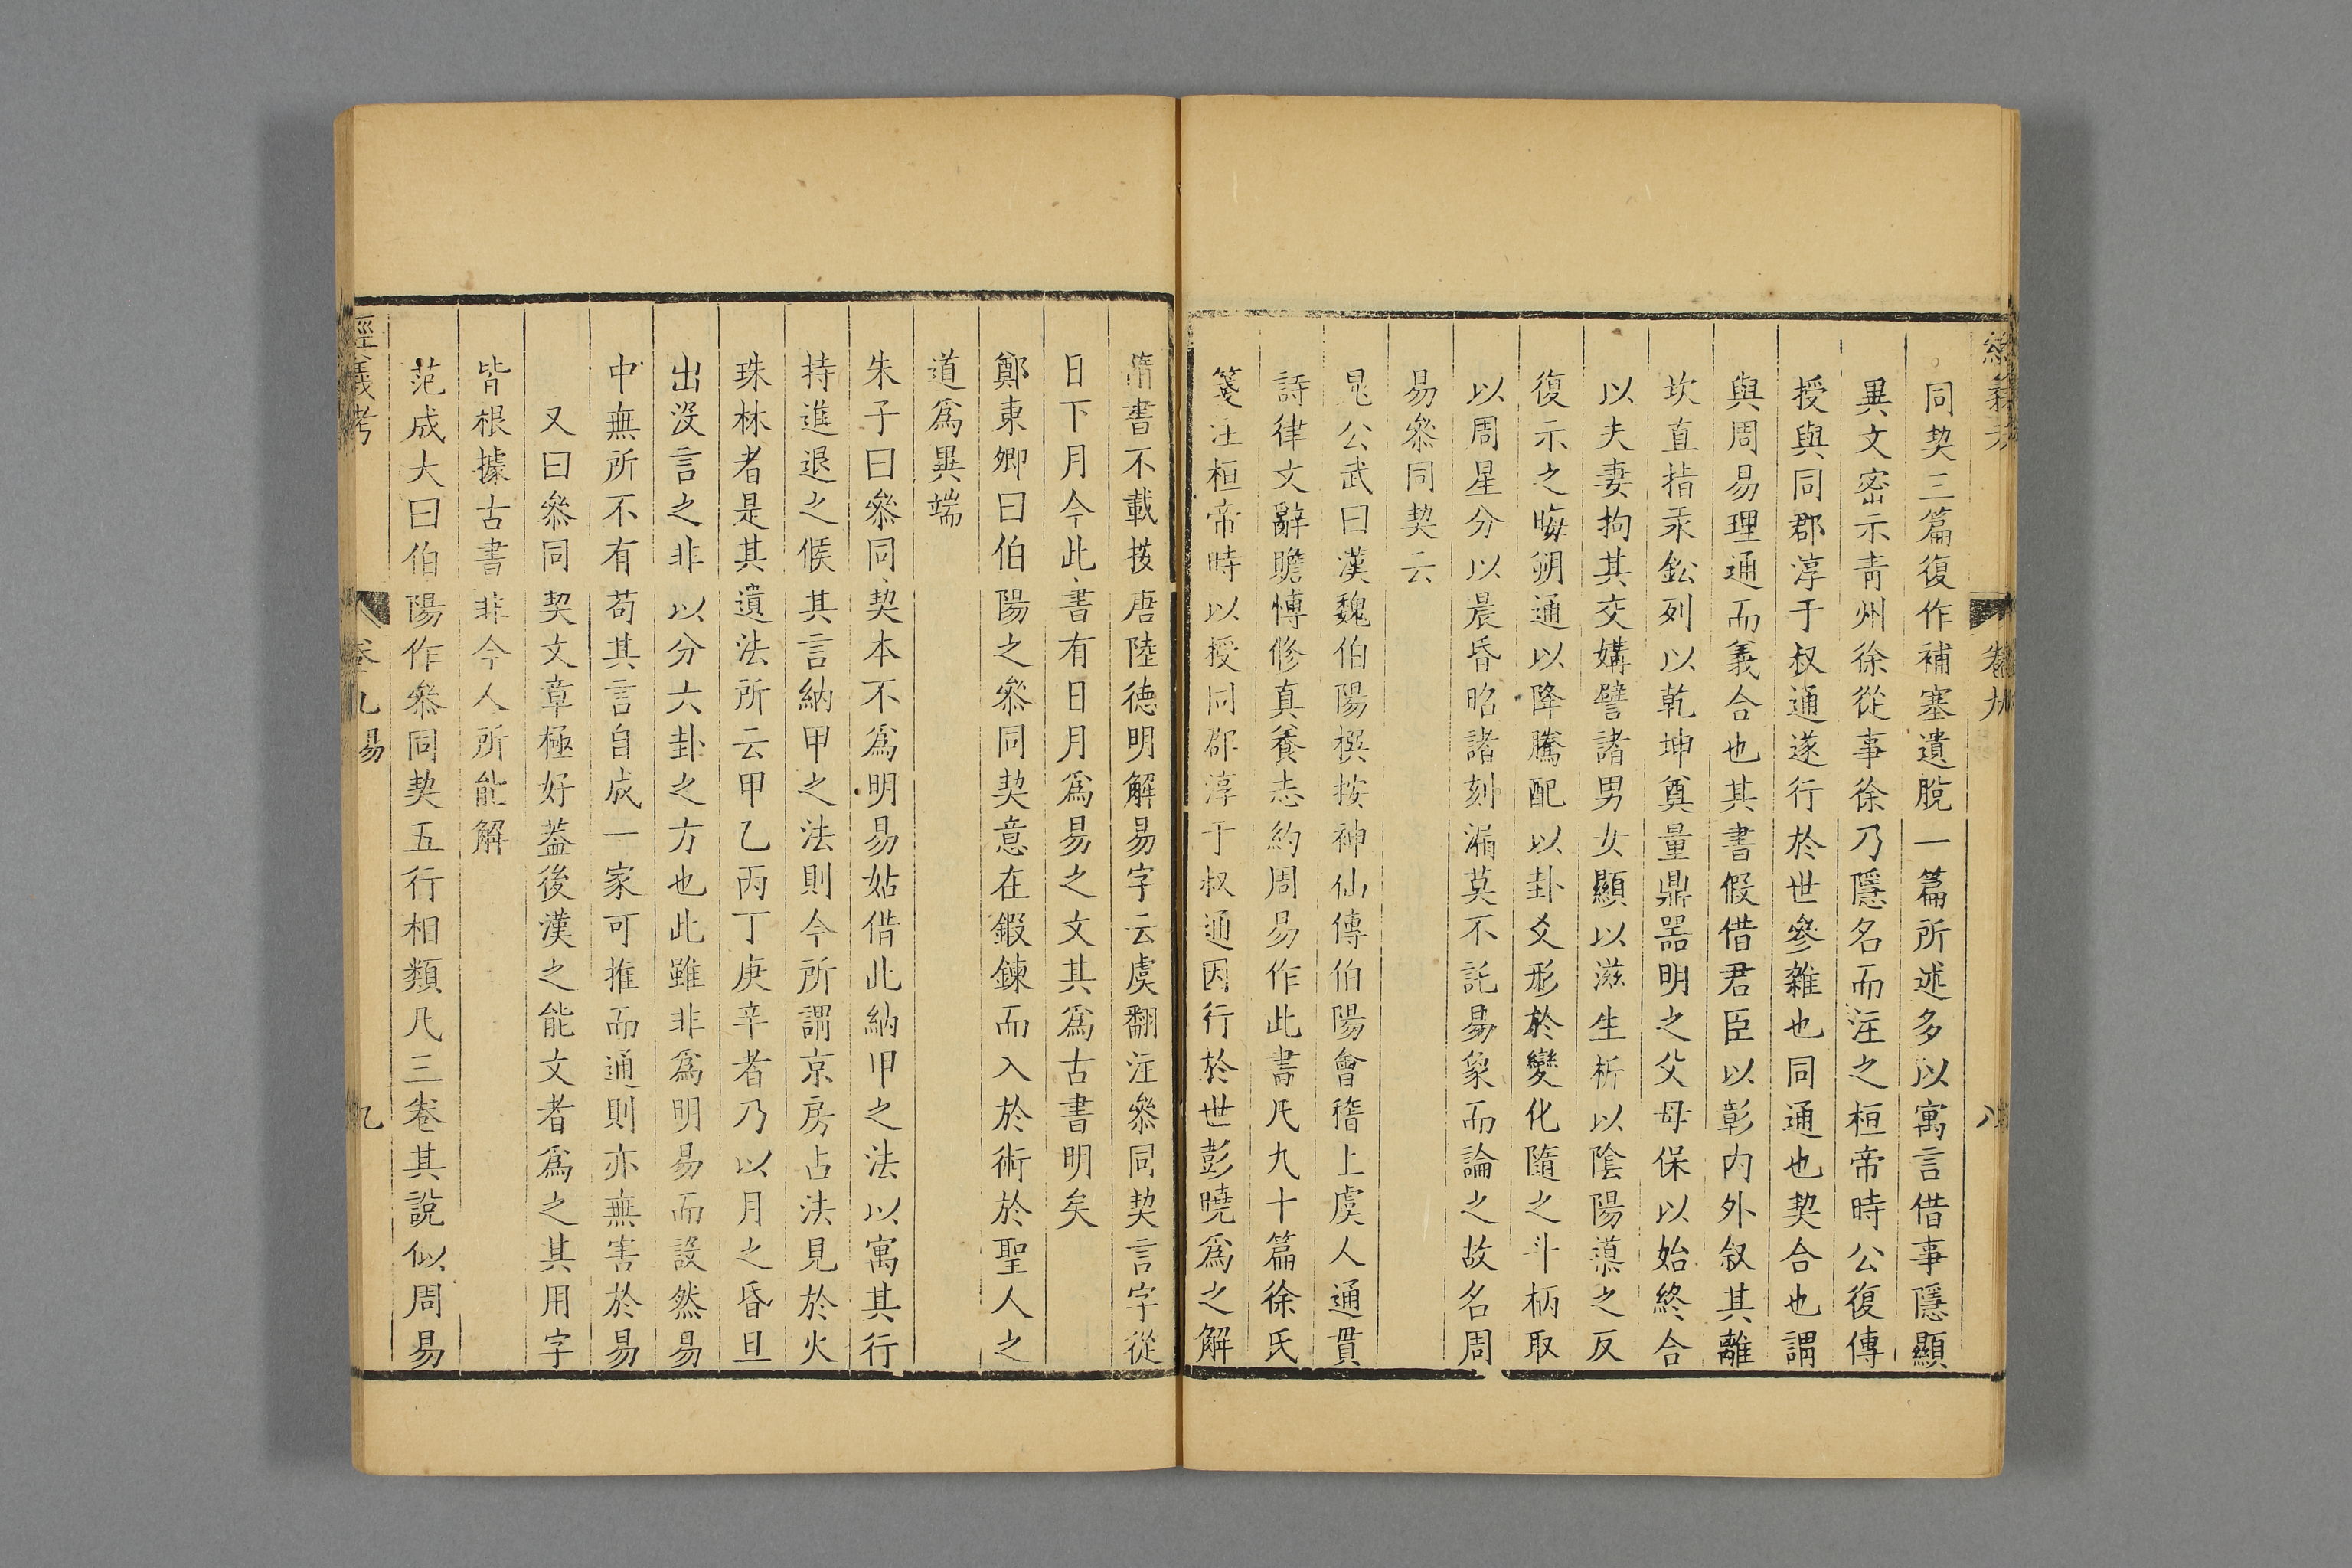 同契三篇復作補塞遺脫一篇所述多以寓言借事隱顯
異文密示青州徐從事徐乃隱名而注之桓帝時公復傳
授與同郡淳于叔通遂行於世參雜也同通也契合也謂
與周易理通而義合也其書假借君臣以彰内外叙其離
坎直指汞鈆列以乾坤奠量鼎器明之父母保以始終合
以夫妻拘其交媾譬諸男女顯以滋生析以陰陽導之反
復示之晦朔通以降騰配以卦爻形於變化隨之斗柄取
以周星分以晨昏昭諸刻漏莫不託易象而論之故名周
易叅同契云
晁公武曰漢魏伯陽撰按神仙傳伯陽會稽上虞人通貫
詩律文辭贍愽修真養志約周易作此書凡九十篇徐氏
箋注桓帝時以授同郡淳于叔通因行於世彭曉爲之解
隋書不載按唐陸德明解易字云虞翻注叅同契言字從
日下月今此書有日月爲易之文其爲古書明矣
鄭東卿曰伯陽之叅同契意在鍜鍊而入於術於聖人之
道爲異端
朱子曰叅同契本不爲明易姑借此納甲之法以寓其行
持進退之候其言納甲之法則今所謂京房占法見於火
珠林者是其遺法所云甲乙丙丁庚辛者乃以月之昏旦
出沒言之非以分六卦之方也此雖非爲明易而設然易
中無所不有苟其言自成一家可推而通則亦無害於易
又曰叅同契文章極好葢後漢之能文者爲之其用字
皆根據古書非今人所能解
范成大曰伯陽作叅同契五行相類凡三卷其說似周易
經義考
卷九易
九